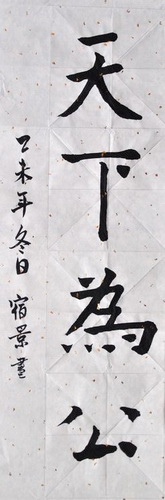 天下為公
乙未年冬日宿景書